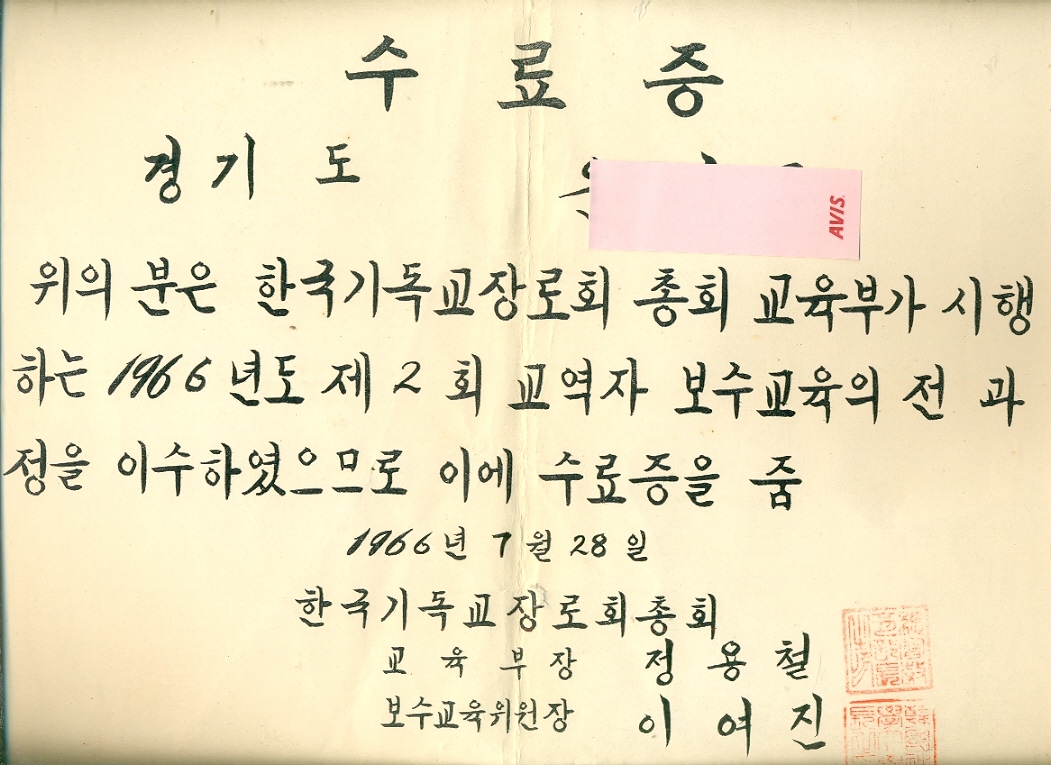 수료증
경기도
AVIS
위의 분은 한국기독교장로회 총회 교육부가 시행
하는 1966년도 제 2 회 교역자 보수교육의 전 과
정을 이수하였으므로 이에 수료증을 줌
1966년 7월 28일
한국기독교장로회총회
교육부장 정용철
보수교육위원장 이여진